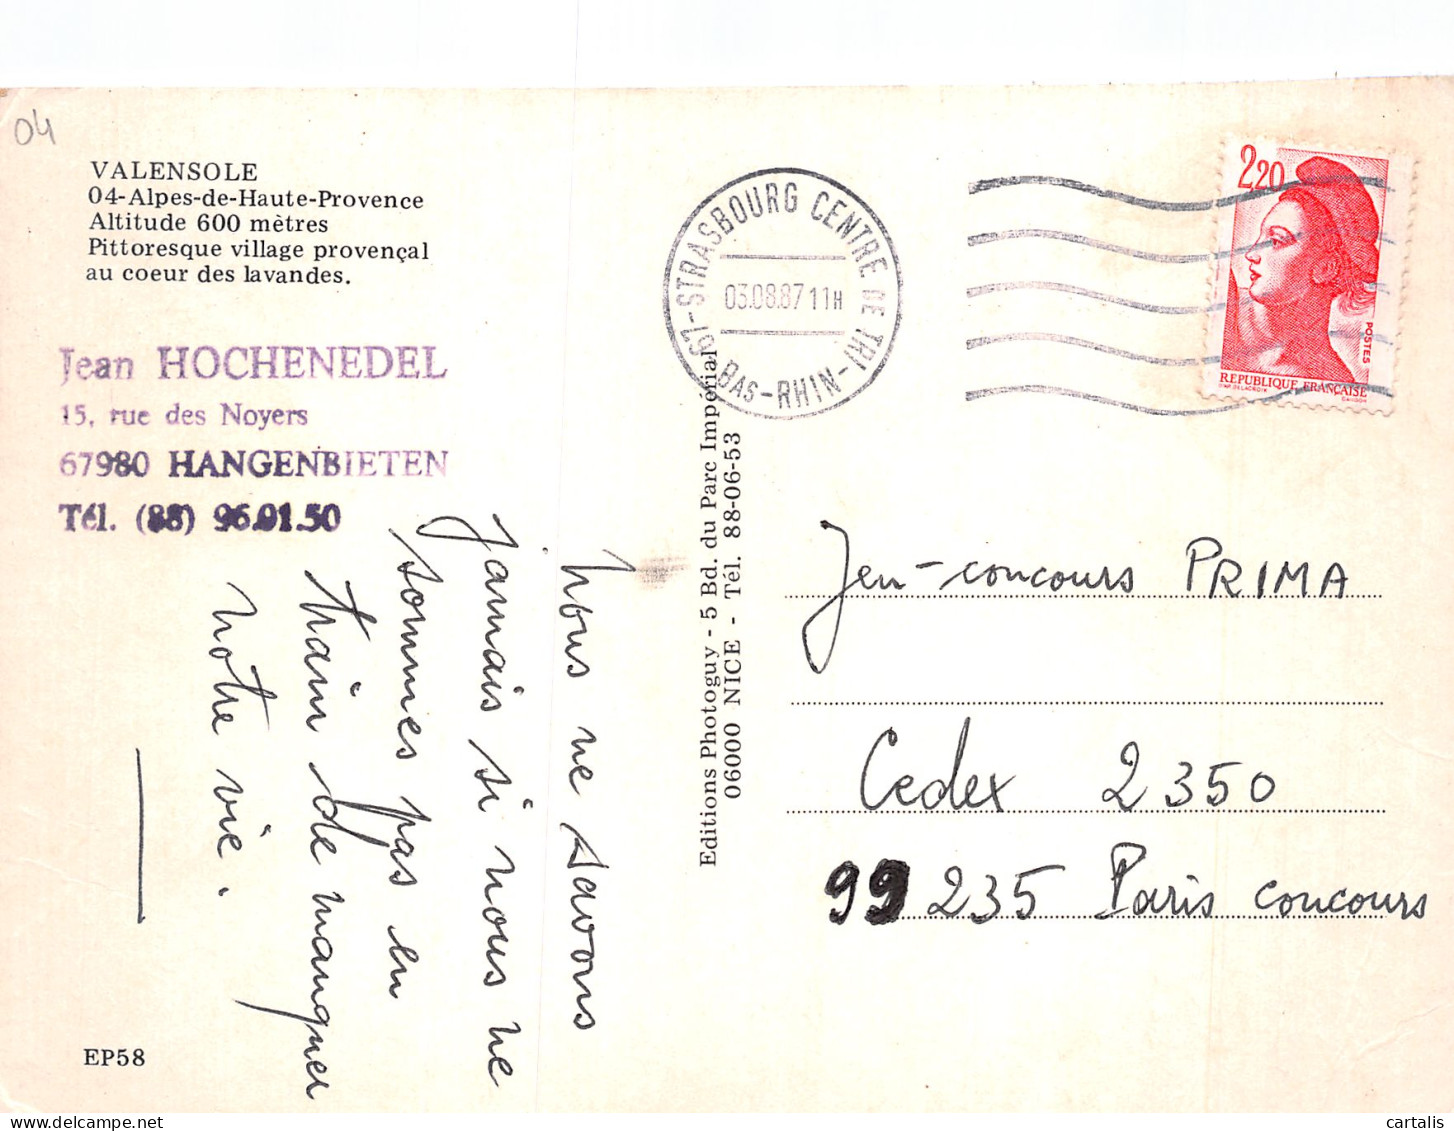 04
VALENSOLE
04-Alpes-de-Haute-Provence
Altitude 600 mètres
Pittoresque village provençal
au coeur des lavandes.
Jean HOCHENEDEL
15, rue des Noyers
67980 HANGENBIETEN
Tél. (88) 96.01.50
Nous ne savons
Jamais si nous ne
sommes pas en
train de manquer
notre vie.
EP58
Editions Photoguy - 5 Bd. du Parc Impérial
06000 NICE - Tél. 88-06-53
67-STRASBOURG CENTRE DE TRI
03.08.87 11H
BAS-RHIN
2,20
POSTES
REPUBLIQUE FRANÇAISE
D'AP. DELACROIX GANDON
Jeu-concours PRIMA
Cedex 2350
99 235 Paris concours
cartalis